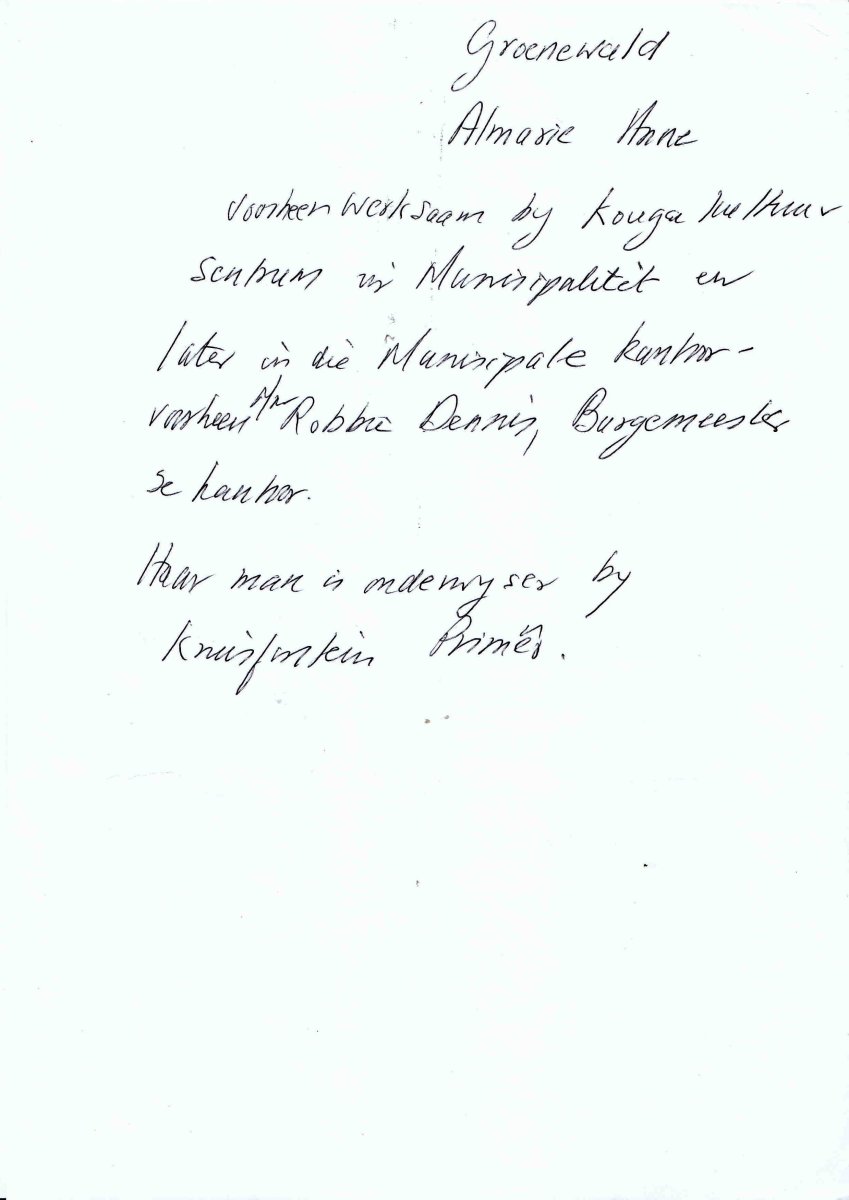 Groenewald
Almarie Anne
voorheen werksaam by Kouga kultuur
sentrum vir Munisipalitêt en
later in die Munisipale kantoor -
voorheen Mnr Robbie Dennis, Burgemeester
se kantoor.
Haar man is onderwyser by
Kruisfontein Primêr.